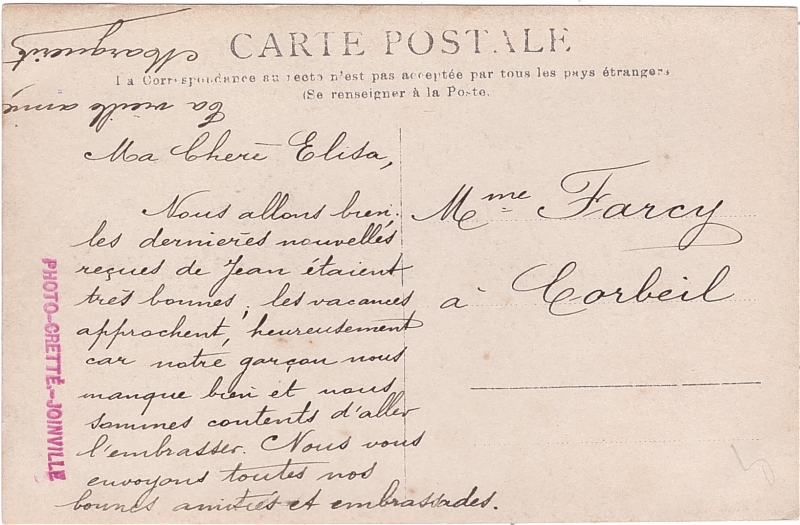 CARTE POSTALE
La Correspondance au recto n'est pas acceptée par tous les pays étrangers
(Se renseigner à la Poste.
Ma Chère Elisa,
Nous allons bien.
les dernières nouvelles
reçues de Jean étaient
très bonnes, les vacances
approchent, heureusement
car notre garçon nous
manque bien et nous
sommes contents d'aller
l'embrasser. Nous vous
envoyons toutes nos
bonnes amitiés et embrassades.
Ta vieille amie
Marguerite
Mme Farcy
à Corbeil
PHOTO-CRETTÉ.-JOINVILLE